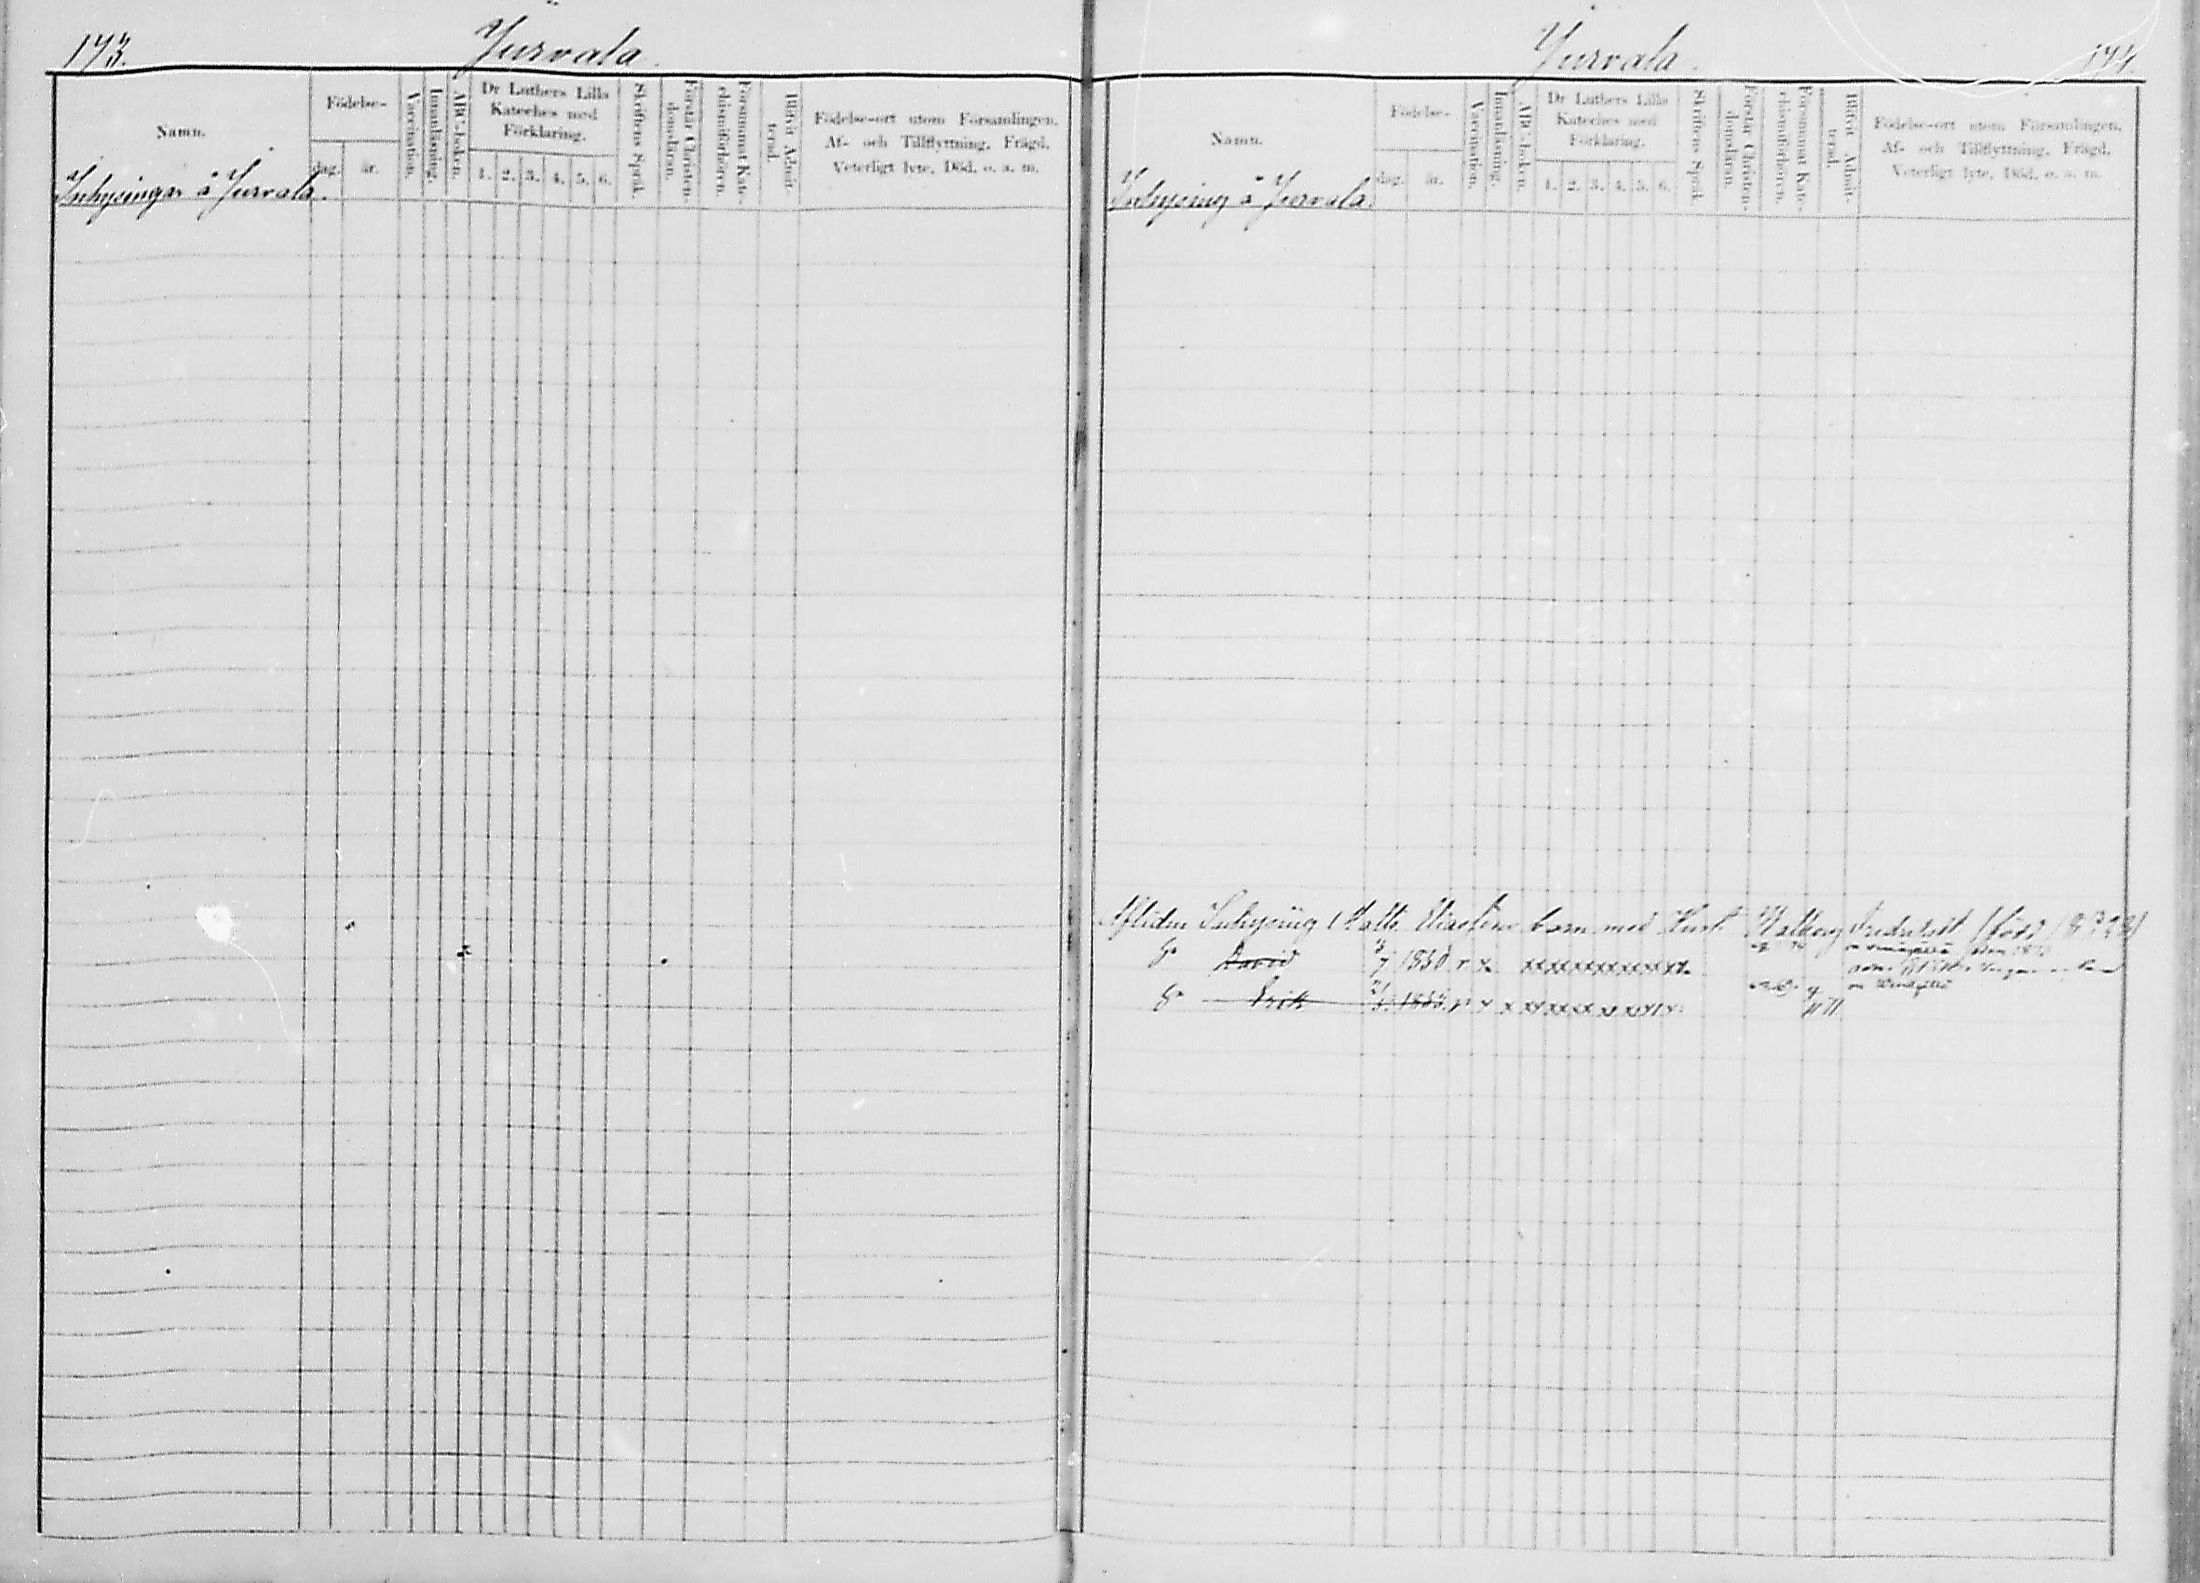 173.
Jurvala.
Namn.
Födelse-
dag.
år.
Vaccination.
Innanläsning.
ABC-boken.
Dr Luthers Lilla
Kateches med
Förklaring.
1. 2. 3. 4. 5. 6.
Skriftens Språk.
Förstår Christen-
domsläran.
Försummat Kate-
chismiförhören.
Blivit Admit-
terad.
Födelse-ort utom Församlingen.
Af- och Tillflyttning. Frägd.
Veterligt lyte. Död. o. s. m.
Inhysingar å Jurvala.
Jurvala.
174.
Namn.
Födelse-
dag.
år.
Vaccination.
Innanläsning.
ABC-boken.
Dr Luthers Lilla
Kateches med
Förklaring.
1. 2. 3. 4. 5. 6.
Skriftens Språk.
Förstår Christen-
domsläran.
Försummat Kate-
chismiförhören.
Blivit Admit-
terad.
Födelse-ort utom Församlingen.
Af- och Tillflyttning. Frägd.
Veterligt lyte. Död. o. s. m.
Inhysing å Jurvala
Afliden Inhysing Matts Eliassons barn med Hust.
David 1850
Erik